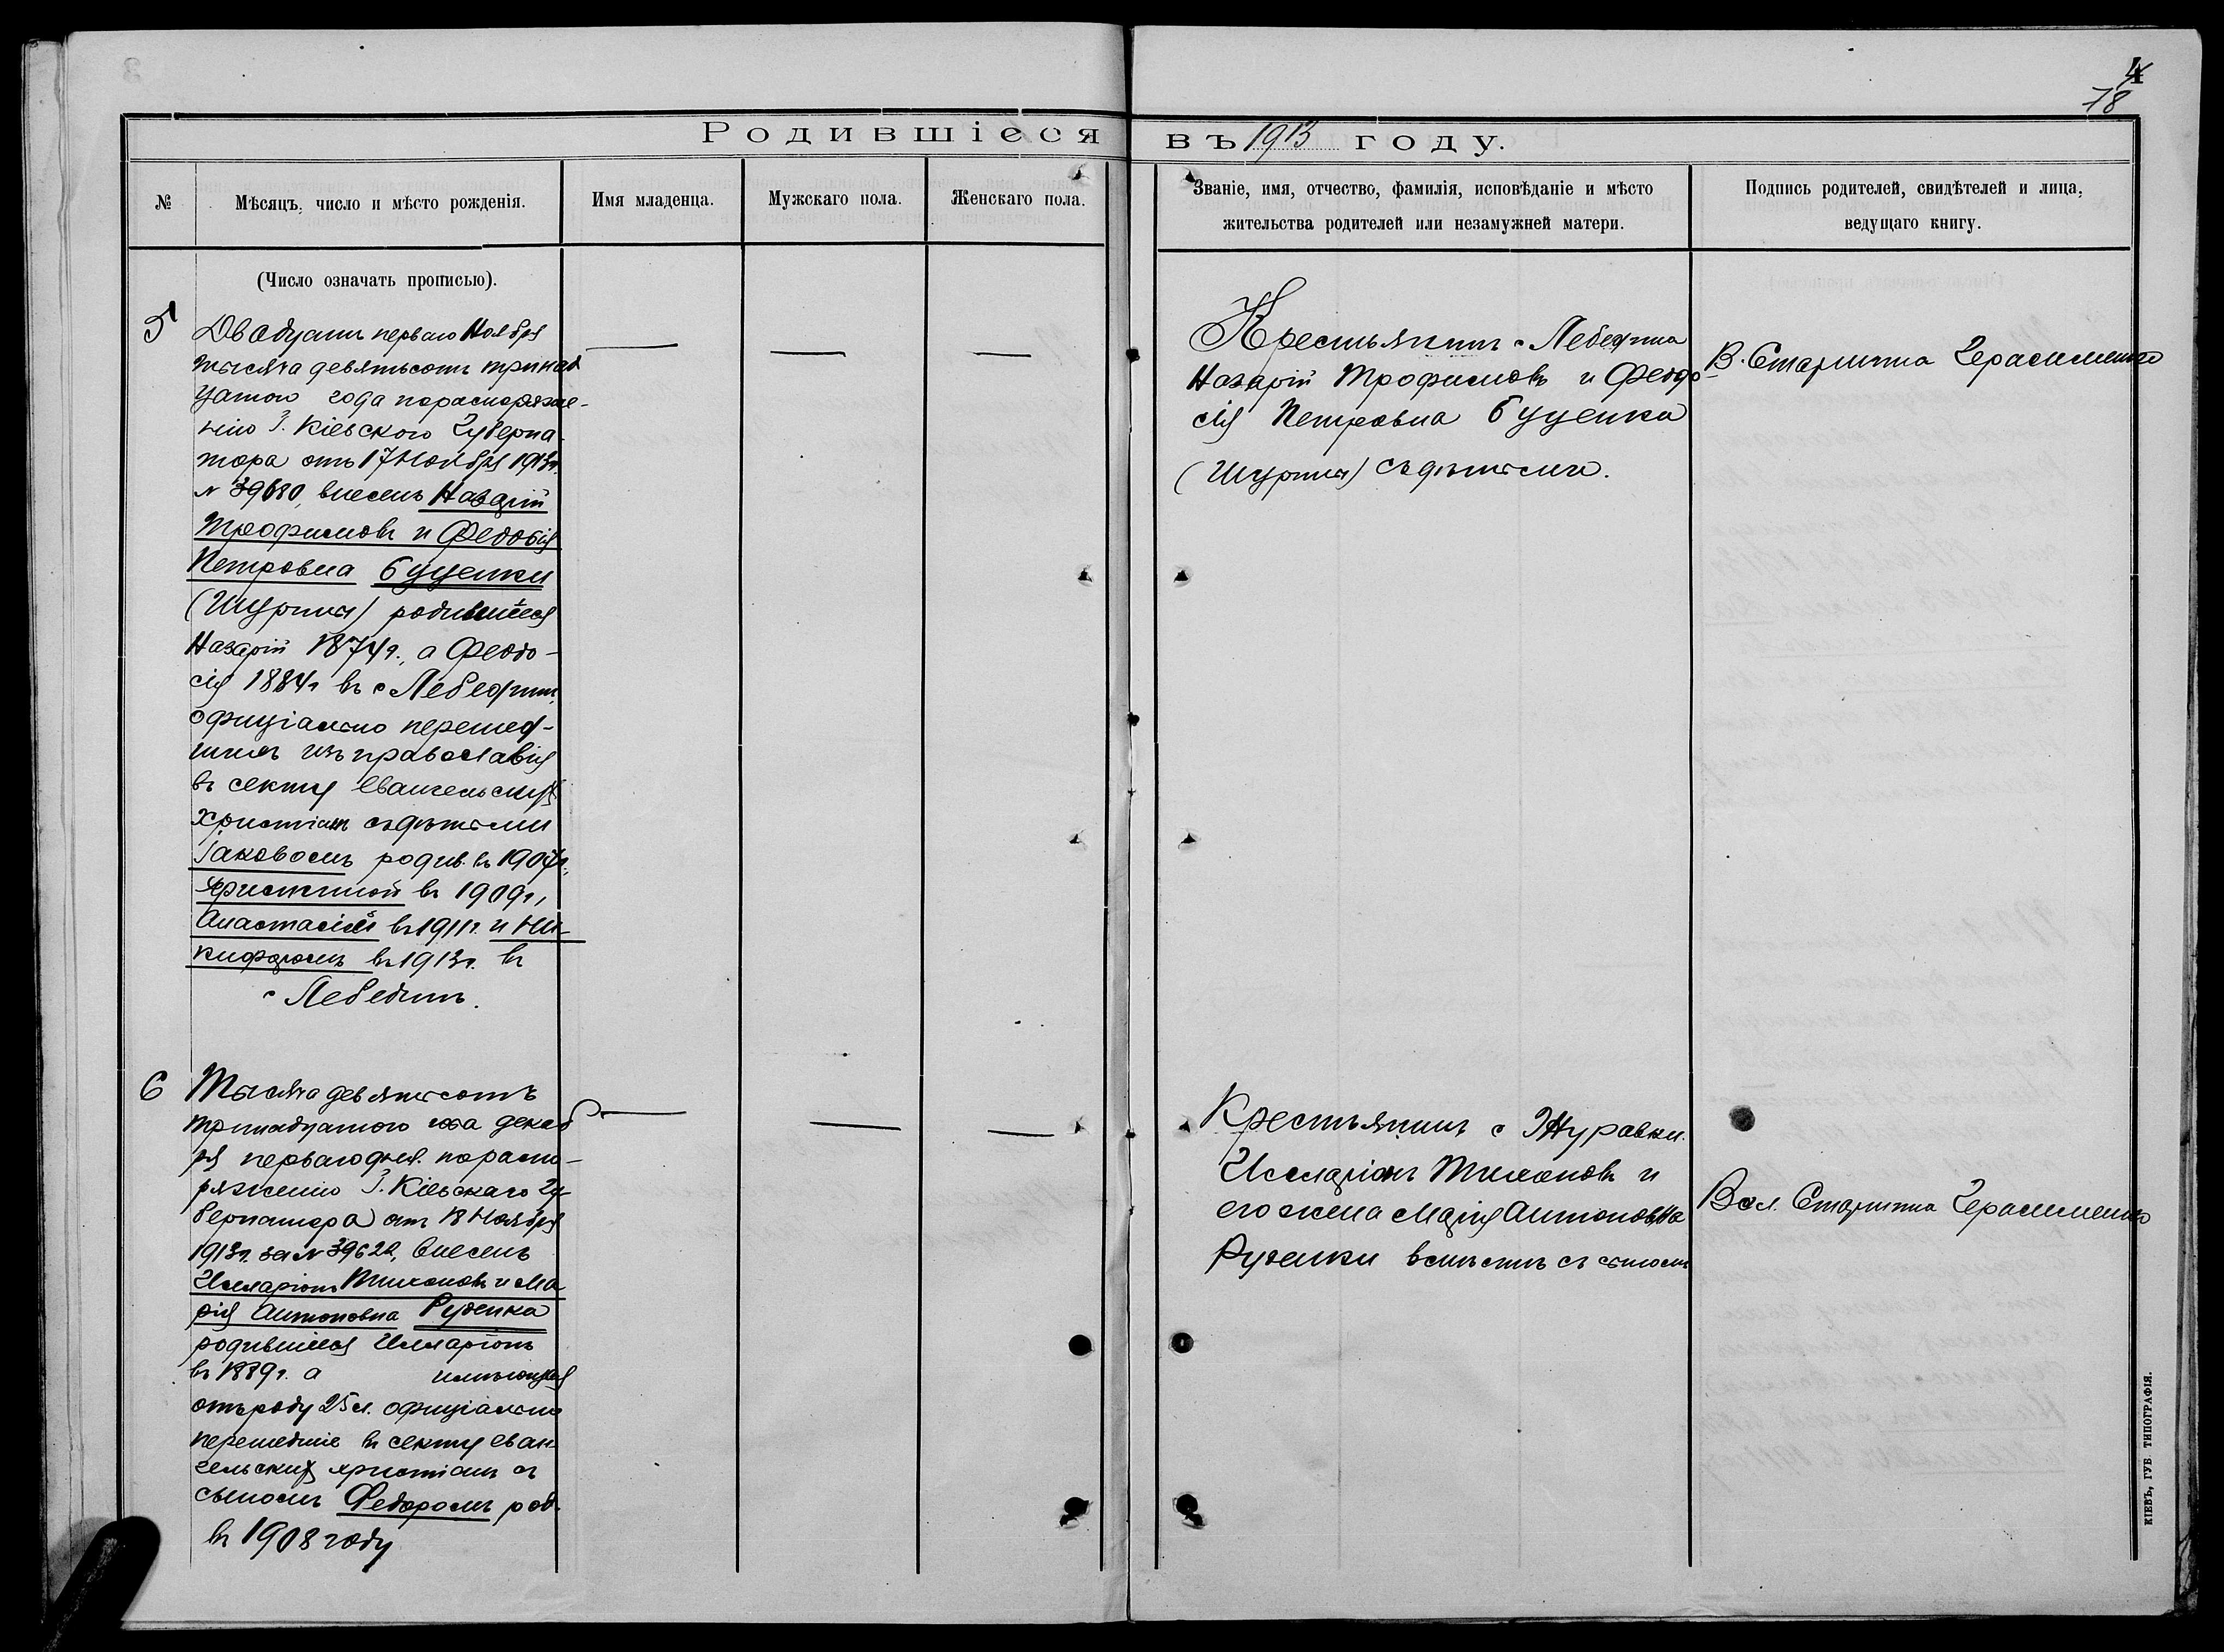 4
78
Родившіеся въ 1913 году.
№
Мѣсяцъ, число и мѣсто рожденія.
Имя младенца.
Мужскаго пола.
Женскаго пола.
Званіе, имя, отчество, фамилія, исповѣданіе и мѣсто
жительства родителей или незамужней матери.
Подпись родителей, свидѣтелей и лица,
ведущаго книгу.
(Число означать прописью).
5
Двадцать перваго Ноября
тысяча девятьсотъ тринад
цатого года по распоряже-
нію Г. Кіевского Губерна-
тора отъ 17 Ноября 1913г.
№ 39680, внесенъ Назарій
Трофимовъ и Федосія
Петровна Буценки
(Шурина) родившіеся
Назарій 1874г., а Феодо-
сія 1884г въ с Лебединѣ,
офиціально перешед-
шихъ изъ православія
въ секту евангельскихъ
христіанъ съ дѣтьми
Іаковомъ родив. въ 1907г.,
Христиной въ 1909г,
Анастасіей въ 1911г. и Ни-
кифоромъ въ 1913г. въ
с Лебединѣ.
Крестьянинъ с Лебедина
Назарій Трофимовъ и Феодо-
сія Петровна Буценка
(Шурина) съ дѣтьми.
В. Старшина Герасименко
6
Тысяча девятьсотъ
тринадцатого года декаб
ря перваго дня. по распо-
ряженію Г. Кіевскаго Гу-
бернатора отъ 18 Ноября
1913г. за № 39622, внесенъ
Илларіонъ Тихоновъ и Ма
рія Антоновна Руденка
родившіеся Илларіонъ
въ 1889г. а имѣющая
отъ роду 25 л. офиціально
перешедшіе въ секту еван
гельскихъ христіанъ съ
сыномъ Федоромъ род.
въ 1908 году
Крестьянинъ с Журавки
Илларіонъ Тихоновъ и
его жена Марія Антоновна
Руденки вмѣстѣ съ сыномъ
Вол. Старшина Герасименко
КІЕВЪ, ГУБ. ТИПОГРАФІЯ.